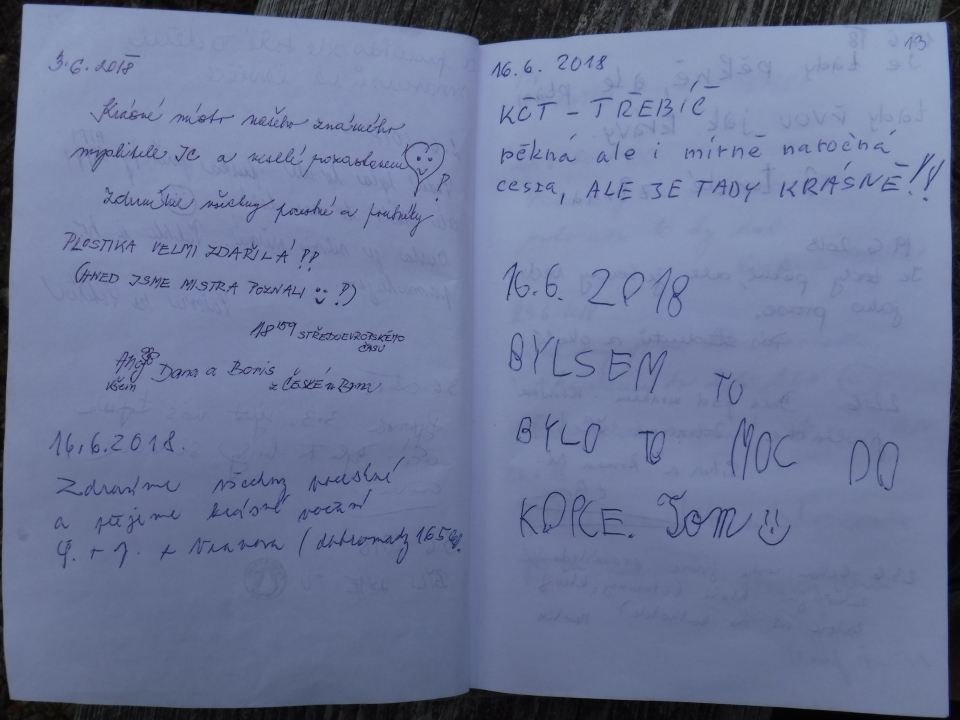 3.6.2018
Krásné místo našeho známého
myslitele JC a veselé pozastavení
Zdravíme všechny pocestné a poutníky
PLOSTIKA VELMI ZDAŘILÁ!!
(HNED JSME MISTRA POZNALI !)
18 59 STŘEDOEVROPSKÉHO
ČASU
Ahoj
všem
Dana a Boris
z ČESKÉ u Brna
16.6.2018.
Zdravíme všechny
a přejeme krásné
z Vranova
13
16.6. 2018
KČT - TŘEBÍČ
pěkná ale i mírně naročná
cesta, ALE JE TADY KRÁSNĚ!!
16.6. 2018
BYLSEM TU
BYLO TO MOC DO
KOPCE. Tom